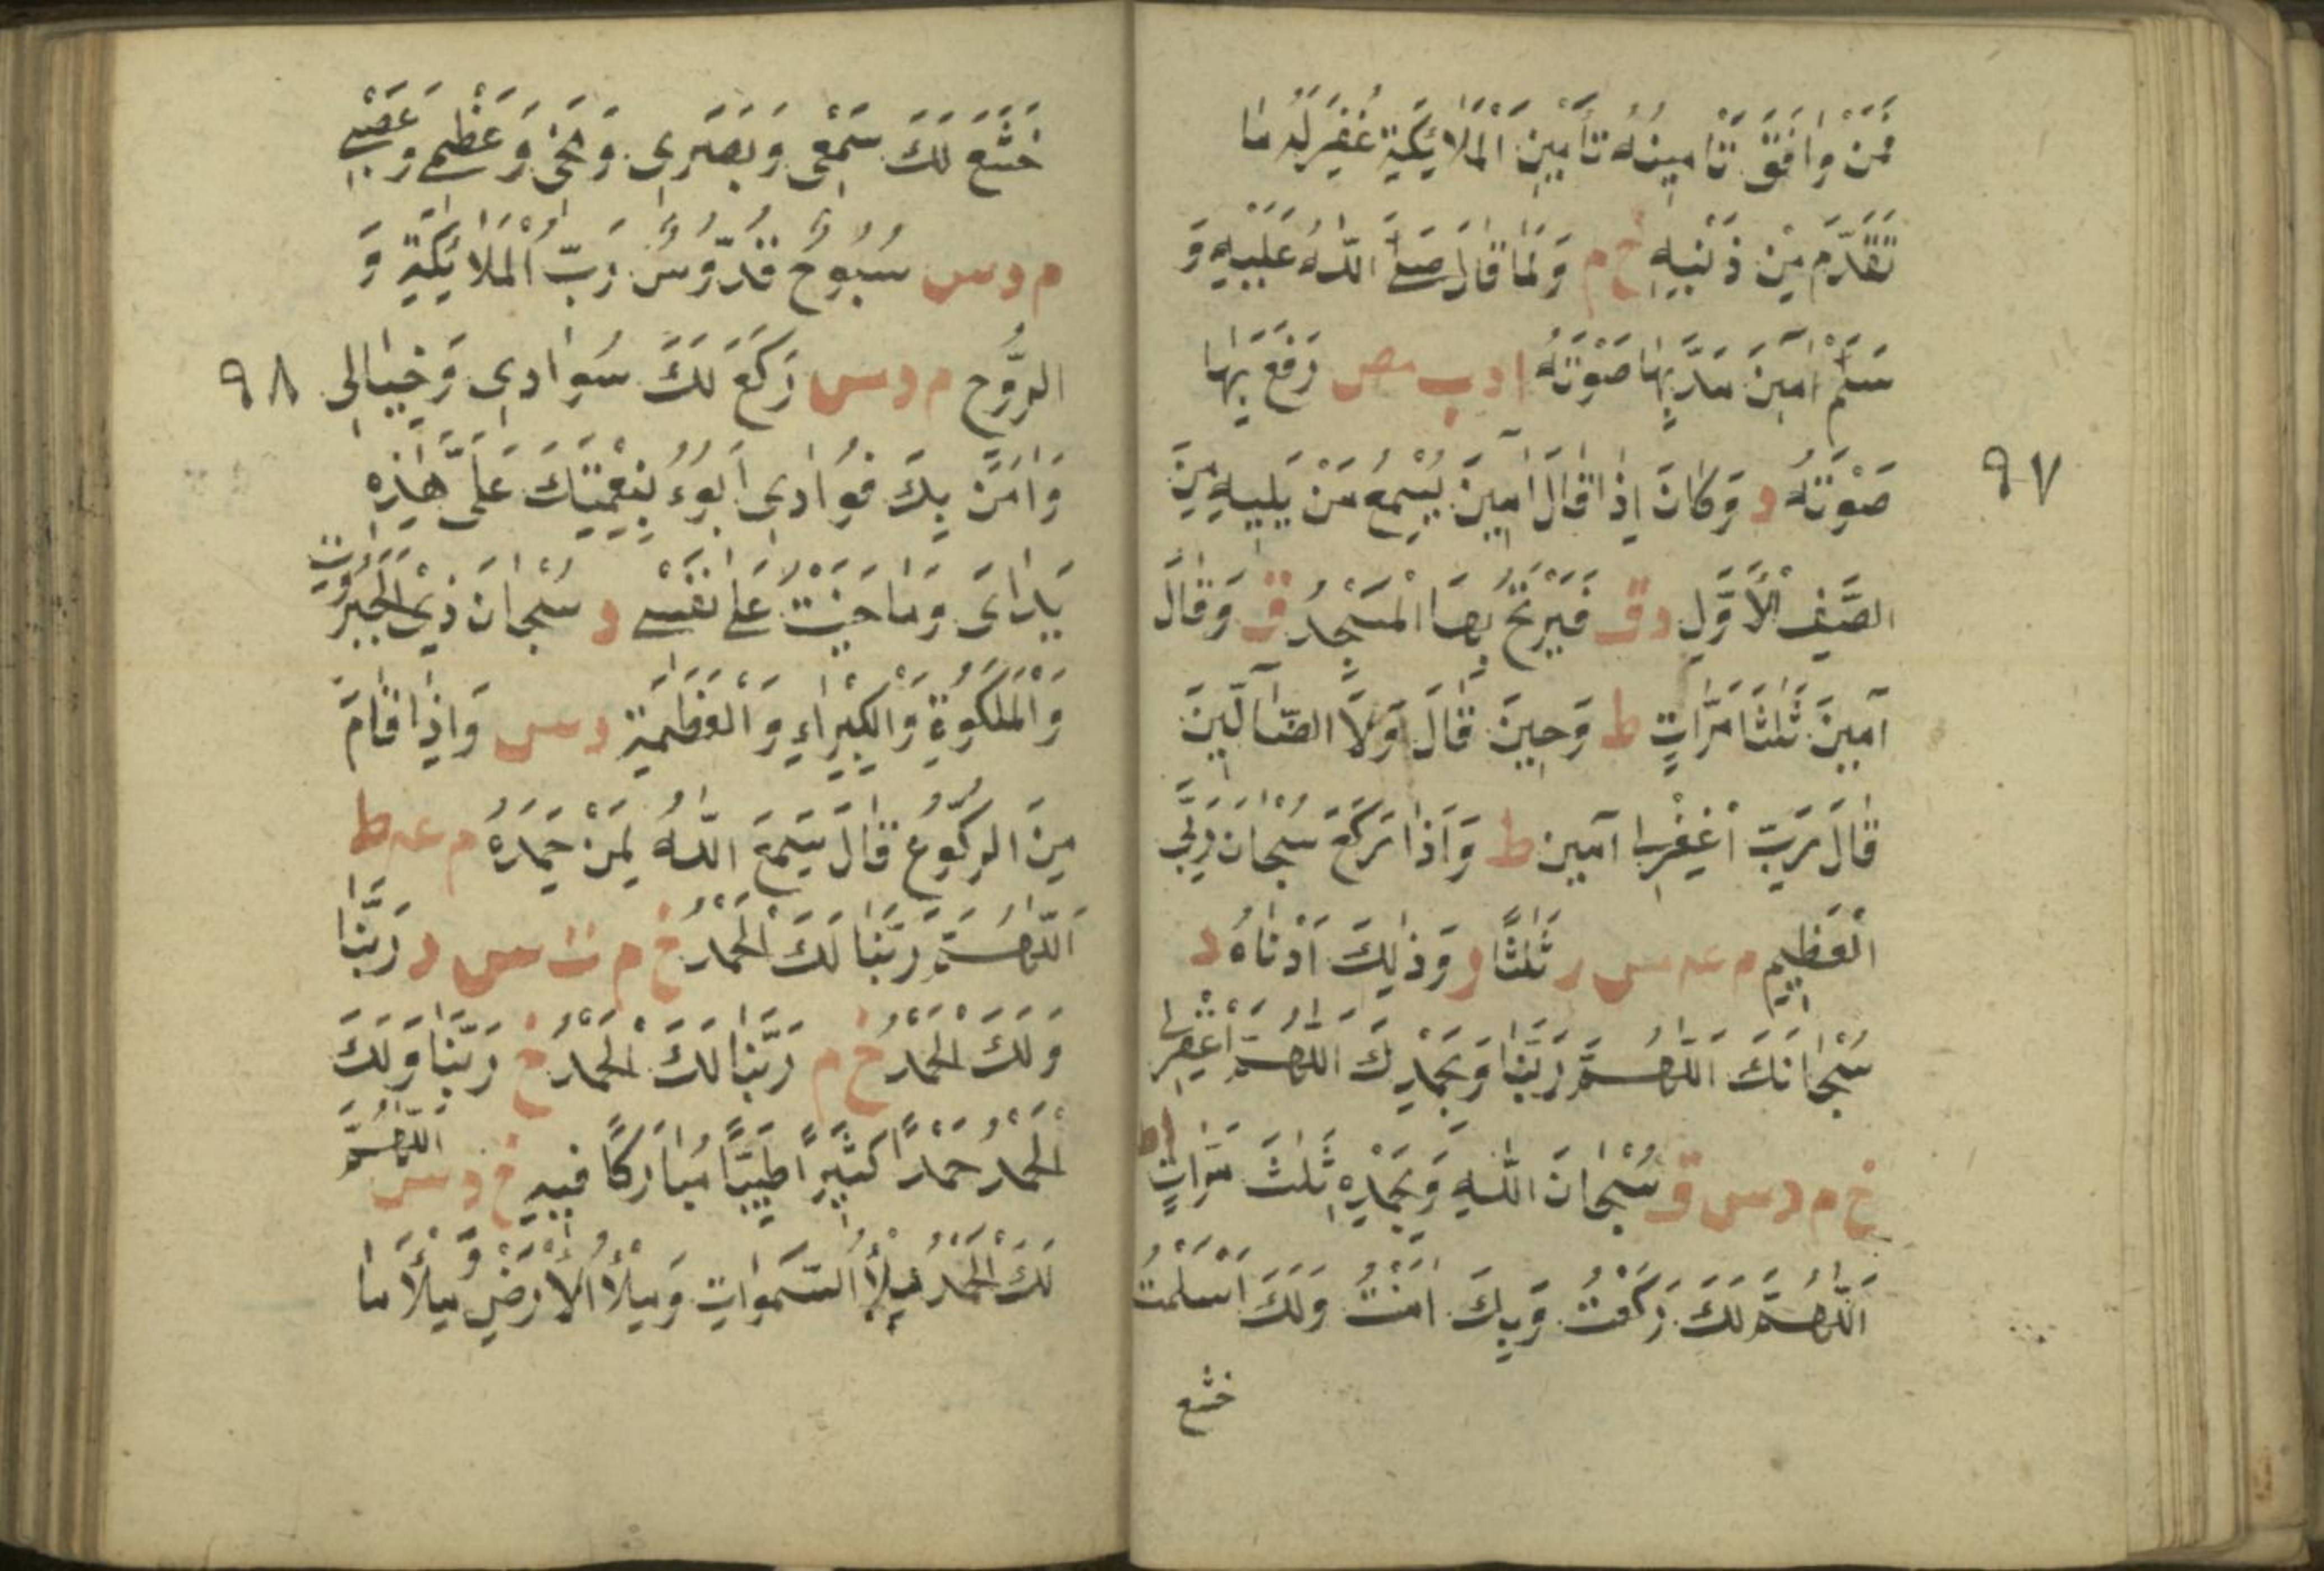 فَمَنْ وَافَقَ تَامِينُهُ تَأمِينَ الْمَلَائِكَةِ غُفِرَ لَهُ مَا
تَقَدَّمَ مِنْ ذَنْبِهِ خ م وَلَمَّا قَالَ صَلَّى اللّٰهُ عَلَيْهِ وَ
سَلَّمَ اٰمِينَ مَدَّ بِهَا صَوْتَهُ ا د ب مص رَفَعَ بِهَا
٩٧
صَوْتَهُ د وَكَانَ اِذَا قَالَ اٰمِينَ يُسْمِعُ مَنْ يَلِيهِ مِنَ
الصَّفِّ الْاَوَّلِ د ق فَيَرْتَجُّ بِهَا الْمَسْجِدُ ق وَقَالَ
آمِينَ ثَلٰثَا مَرَّاتٍ ط وَحِينَ قَالَ وَلَا الضَّآلِّينَ
قَالَ رَبِّ اغْفِرْلِى آمين ط وَاِذَا رَكَعَ سُبْحَانَ رَبِّىَ
الْعَظِيمِ م عه س ر ثَلٰثًا ر وَذٰلِكَ اَدْنَاهُ د
سُبْحَانَكَ اَللّٰهُمَّ رَبَّنَا وَبِحَمْدِكَ اَللّٰهُمَّ اغْفِرْلِى
خ م د س ق سُبْحَانَ اللّٰهِ وَبِحَمْدِهِ ثَلٰثَ مَرَّاتٍ ا ط
اَللّٰهُمَّ لَكَ رَكَعْتُ وَبِكَ اٰمَنْتُ وَلَكَ اَسْلَمْتُ
خشع
خَشَعَ لَكَ سَمْعِى وَبَصَرِى وَمُخِّى وَعَظْمِى وَعَصَبِى
م د س سُبُّوحٌ قُدُّوسٌ رَبُّ الْمَلَائِكَةِ وَ
الرُّوحِ م د س رَكَعَ لَكَ سَوَادِى وَخِيَالِى
٩٨
وَاٰمَنَ بِكَ فُوَادِى اَبُوءُ بِنِعْمَتِكَ عَلَىَّ هٰذِهِ
يَدَاىَ وَمَا جَنَيْتُ عَلٰى نَفْسِى ر سُبْحَانَ ذِى الْجَبَرُوتِ
وَالْمَلَكُوةِ وَالْكِبْرِيَاءِ وَالْعَظَمَةِ د س وَاِذَا قَامَ
مِنَ الرُّكُوعِ قَالَ سَمِعَ اللّٰهُ لِمَنْ حَمِدَهُ م عه ط
اَللّٰهُمَّ رَبَّنَا لَكَ الْحَمْدُ خ م ت س د رَبَّنَا
وَلَكَ الْحَمْدُ خ م رَبَّنَا لَكَ الْحَمْدُ خ رَبَّنَا وَلَكَ
الْحَمْدُ حَمْدًا كَثِيرًا طَيِّبًا مُبَارَكًا فِيهِ خ د س اَللّٰهُمَّ
لَكَ الْحَمْدُ مِلْأَ السَّمٰوَاتِ وَمِلْأَ الْاَرْضِ وَمِلْأَ مَا